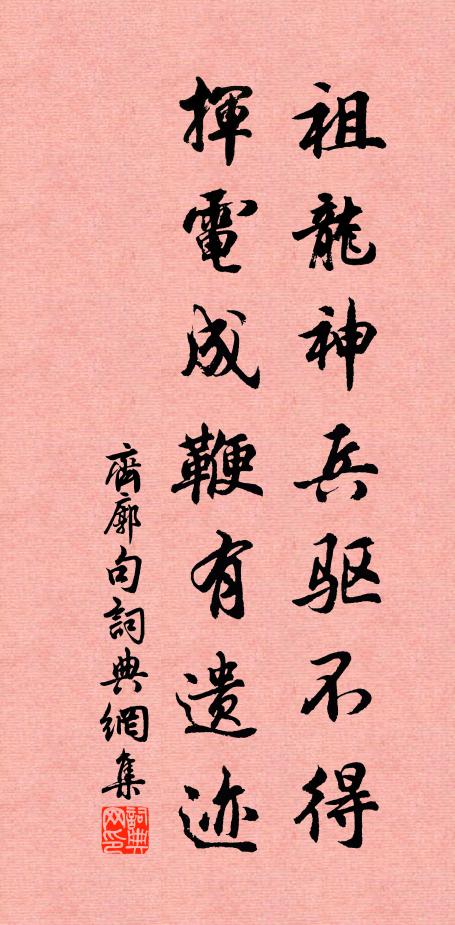 祖龍神兵驱不得
揮電成鞭有遗迹
齊廓句詞典網集
詞典网印